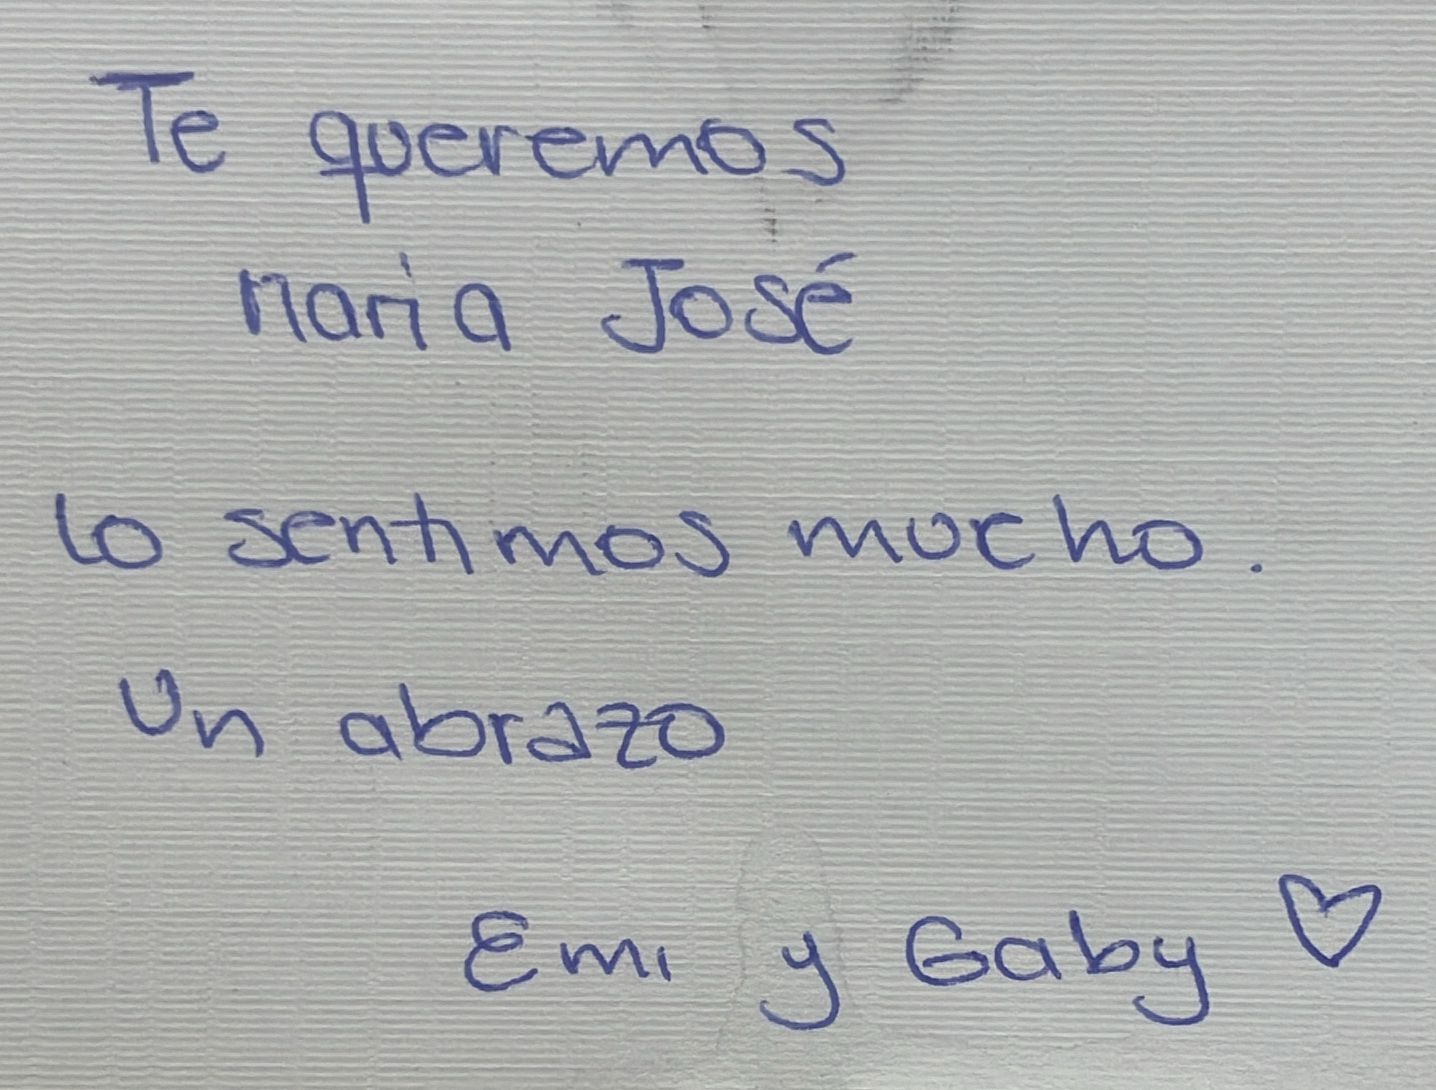 Te queremos
Maria José
lo sentimos mucho.
Un abrazo
Emi y Gaby ♡